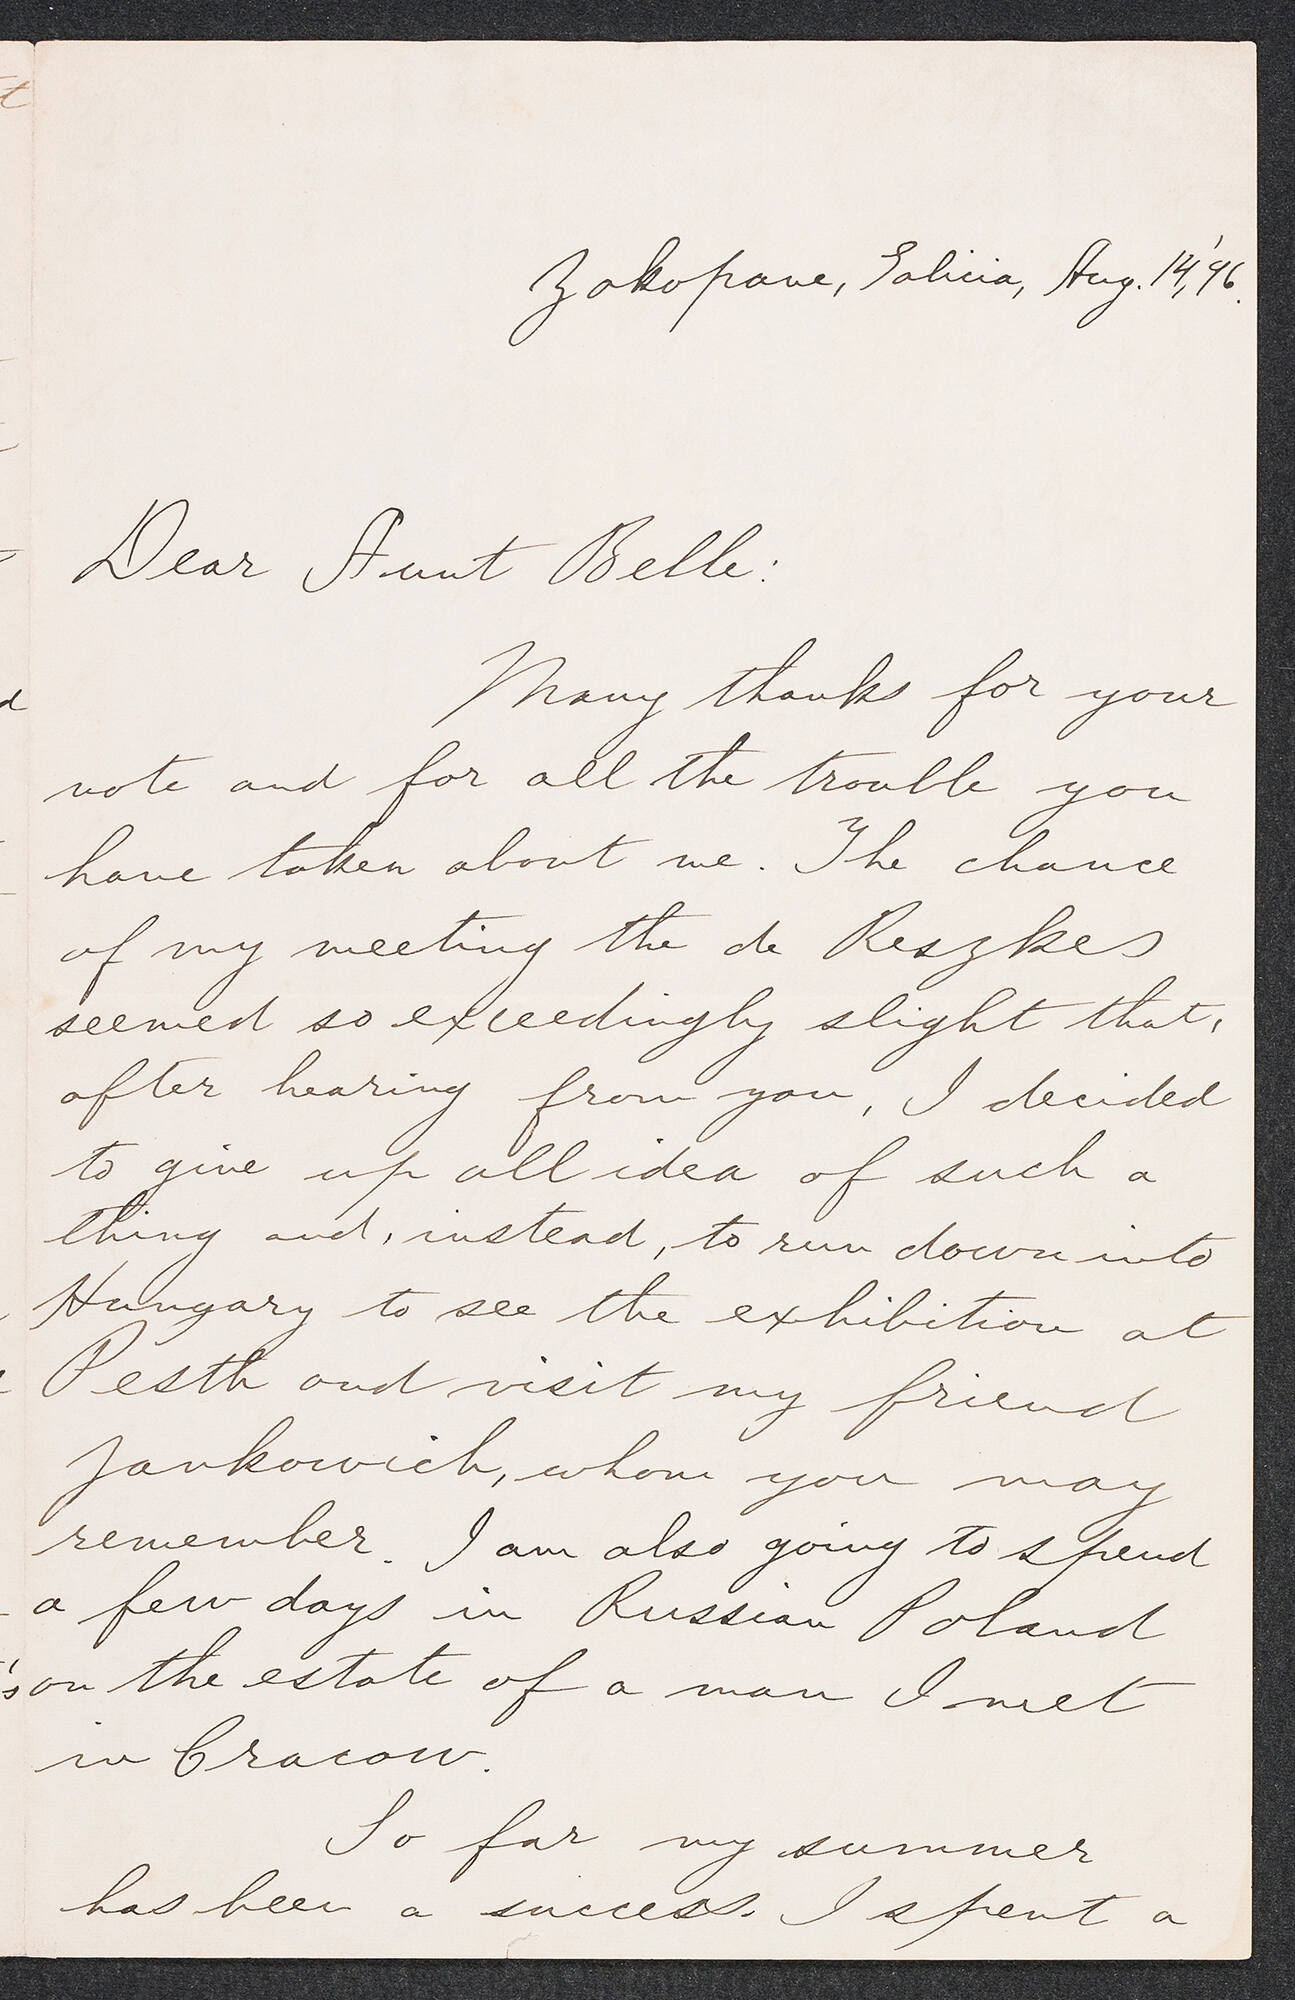 Zakopane, Galicia, Aug. 14, '96.
Dear Aunt Belle:
Many thanks for your
note and for all the trouble you
have taken about me. The chance
of my meeting the de Reszkes
seemed so exceedingly slight that,
after hearing from you, I decided
to give up all idea of such a
thing and, instead, to run down into
Hungary to see the exhibition at
Pesth and visit my friend
Jankowich, whom you may
remember. I am also going to spend
a few days in Russian Poland
on the estate of a man I met
in Cracow.
So far my summer
has been a success. I spent a